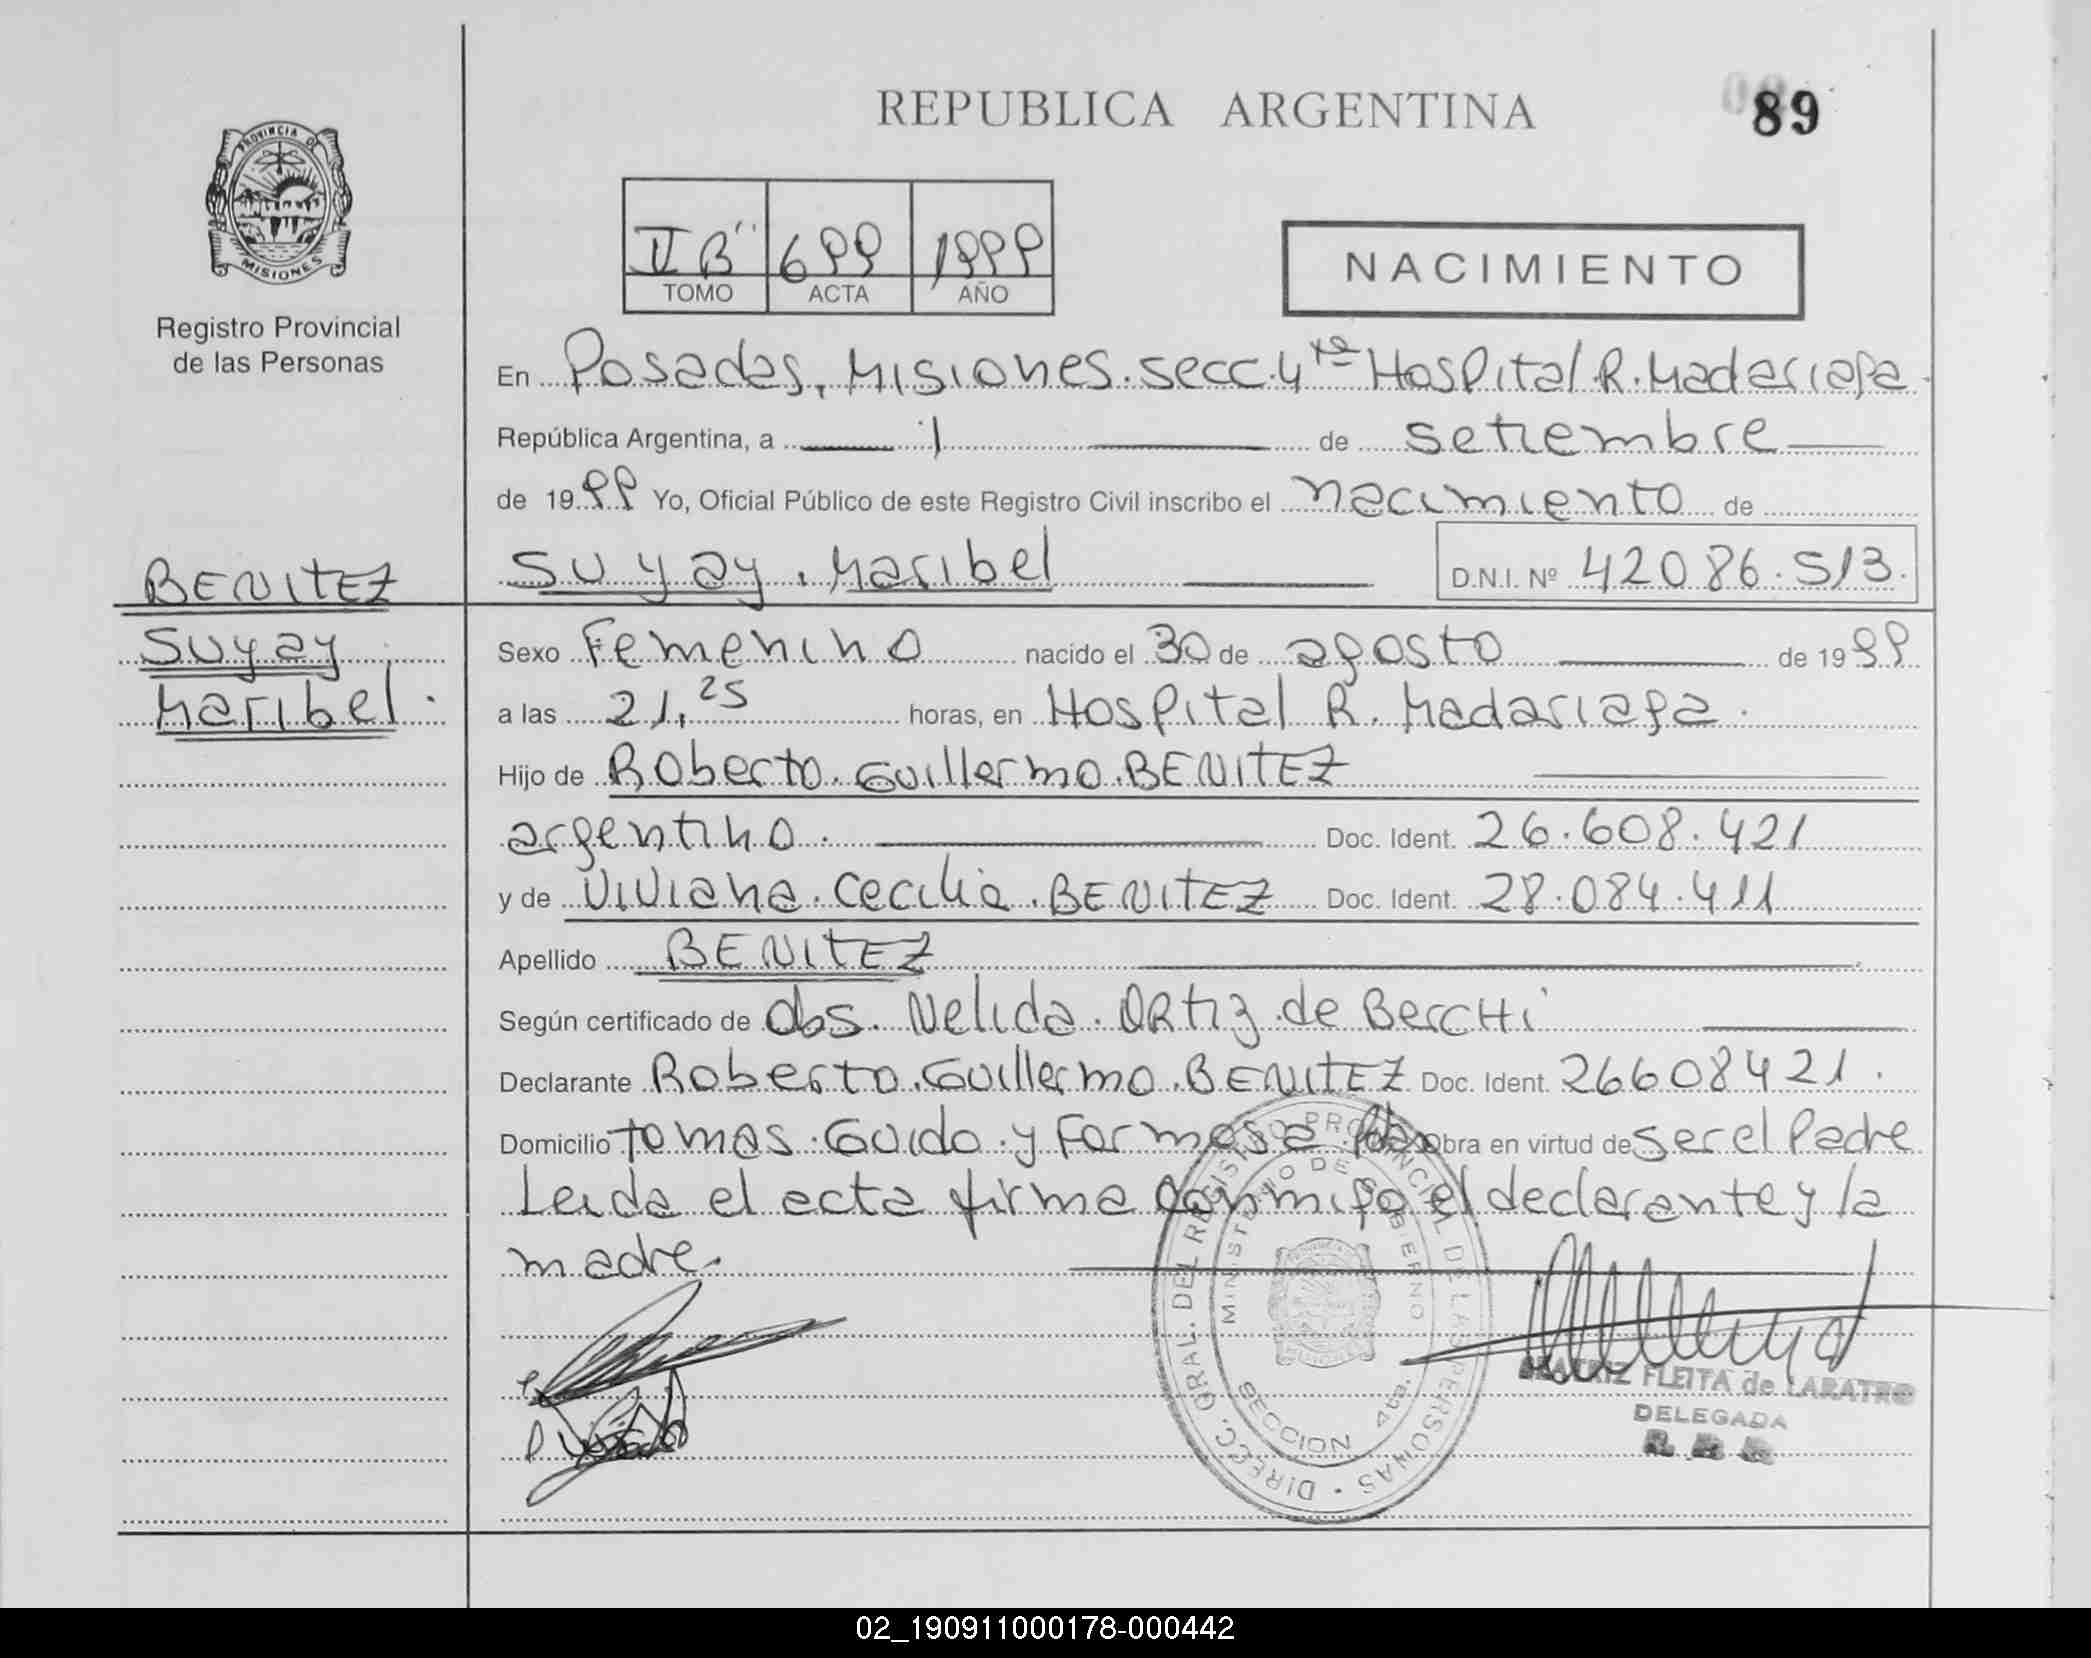 REPUBLICA ARGENTINA
89
PROVINCIA DE
MISIONES
Registro Provincial
de las Personas
II B" 699 1999
TOMO ACTA AÑO
NACIMIENTO
En Posadas, Misiones. secc. 4ta Hospital R. Madariaga.
República Argentina, a 1 de setiembre
de 1999 Yo, Oficial Público de este Registro Civil inscribo el nacimiento de
Suyay. Maribel D.N.I. Nº 42086.513.
BENITEZ
Suyay
Maribel.
Sexo Femenino nacido el 30 de agosto de 1999
a las 21,25 horas, en Hospital R. Madariaga.
Hijo de Roberto. Guillermo. BENITEZ
argentino. Doc. Ident. 26.608.421
y de Viviana. Cecilia. BENITEZ Doc. Ident. 28.084.411
Apellido BENITEZ
Según certificado de Obs. Nelida. ORtiz de BercHi
Declarante Roberto. Guillermo. BENITEZ Doc. Ident. 26608421.
Domicilio Tomas. Guido. y Formosa Obra en virtud de ser el Padre
Leida el acta firma conmigo el declarante y la
madre.
DIRECC. GRAL. DEL REGISTRO PROVINCIAL DE LAS PERSONAS
MINISTERIO DE GOBIERNO
SECCION 4ta.
BEATRIZ FLEITA de LARATRO
DELEGADA
02_190911000178-000442